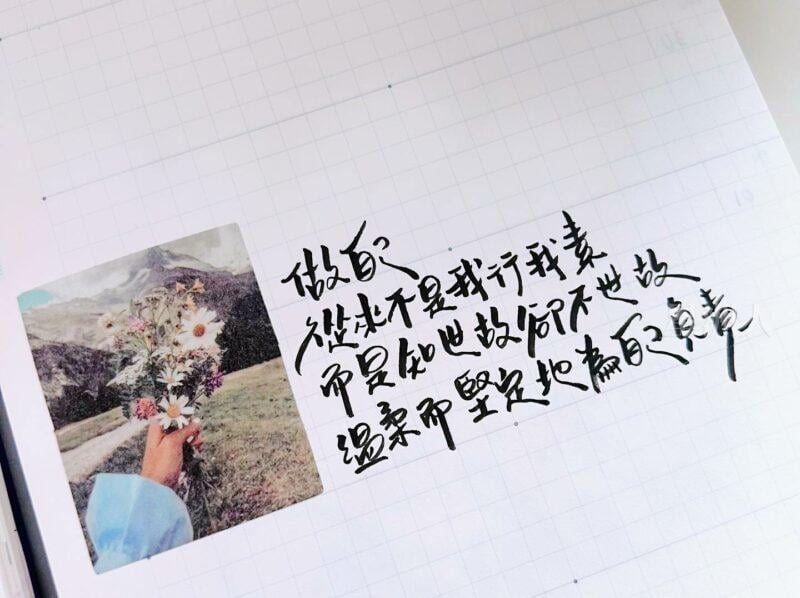 做自己
從來不是我行我素
而是知世故卻不世故
溫柔而堅定地為自己負責